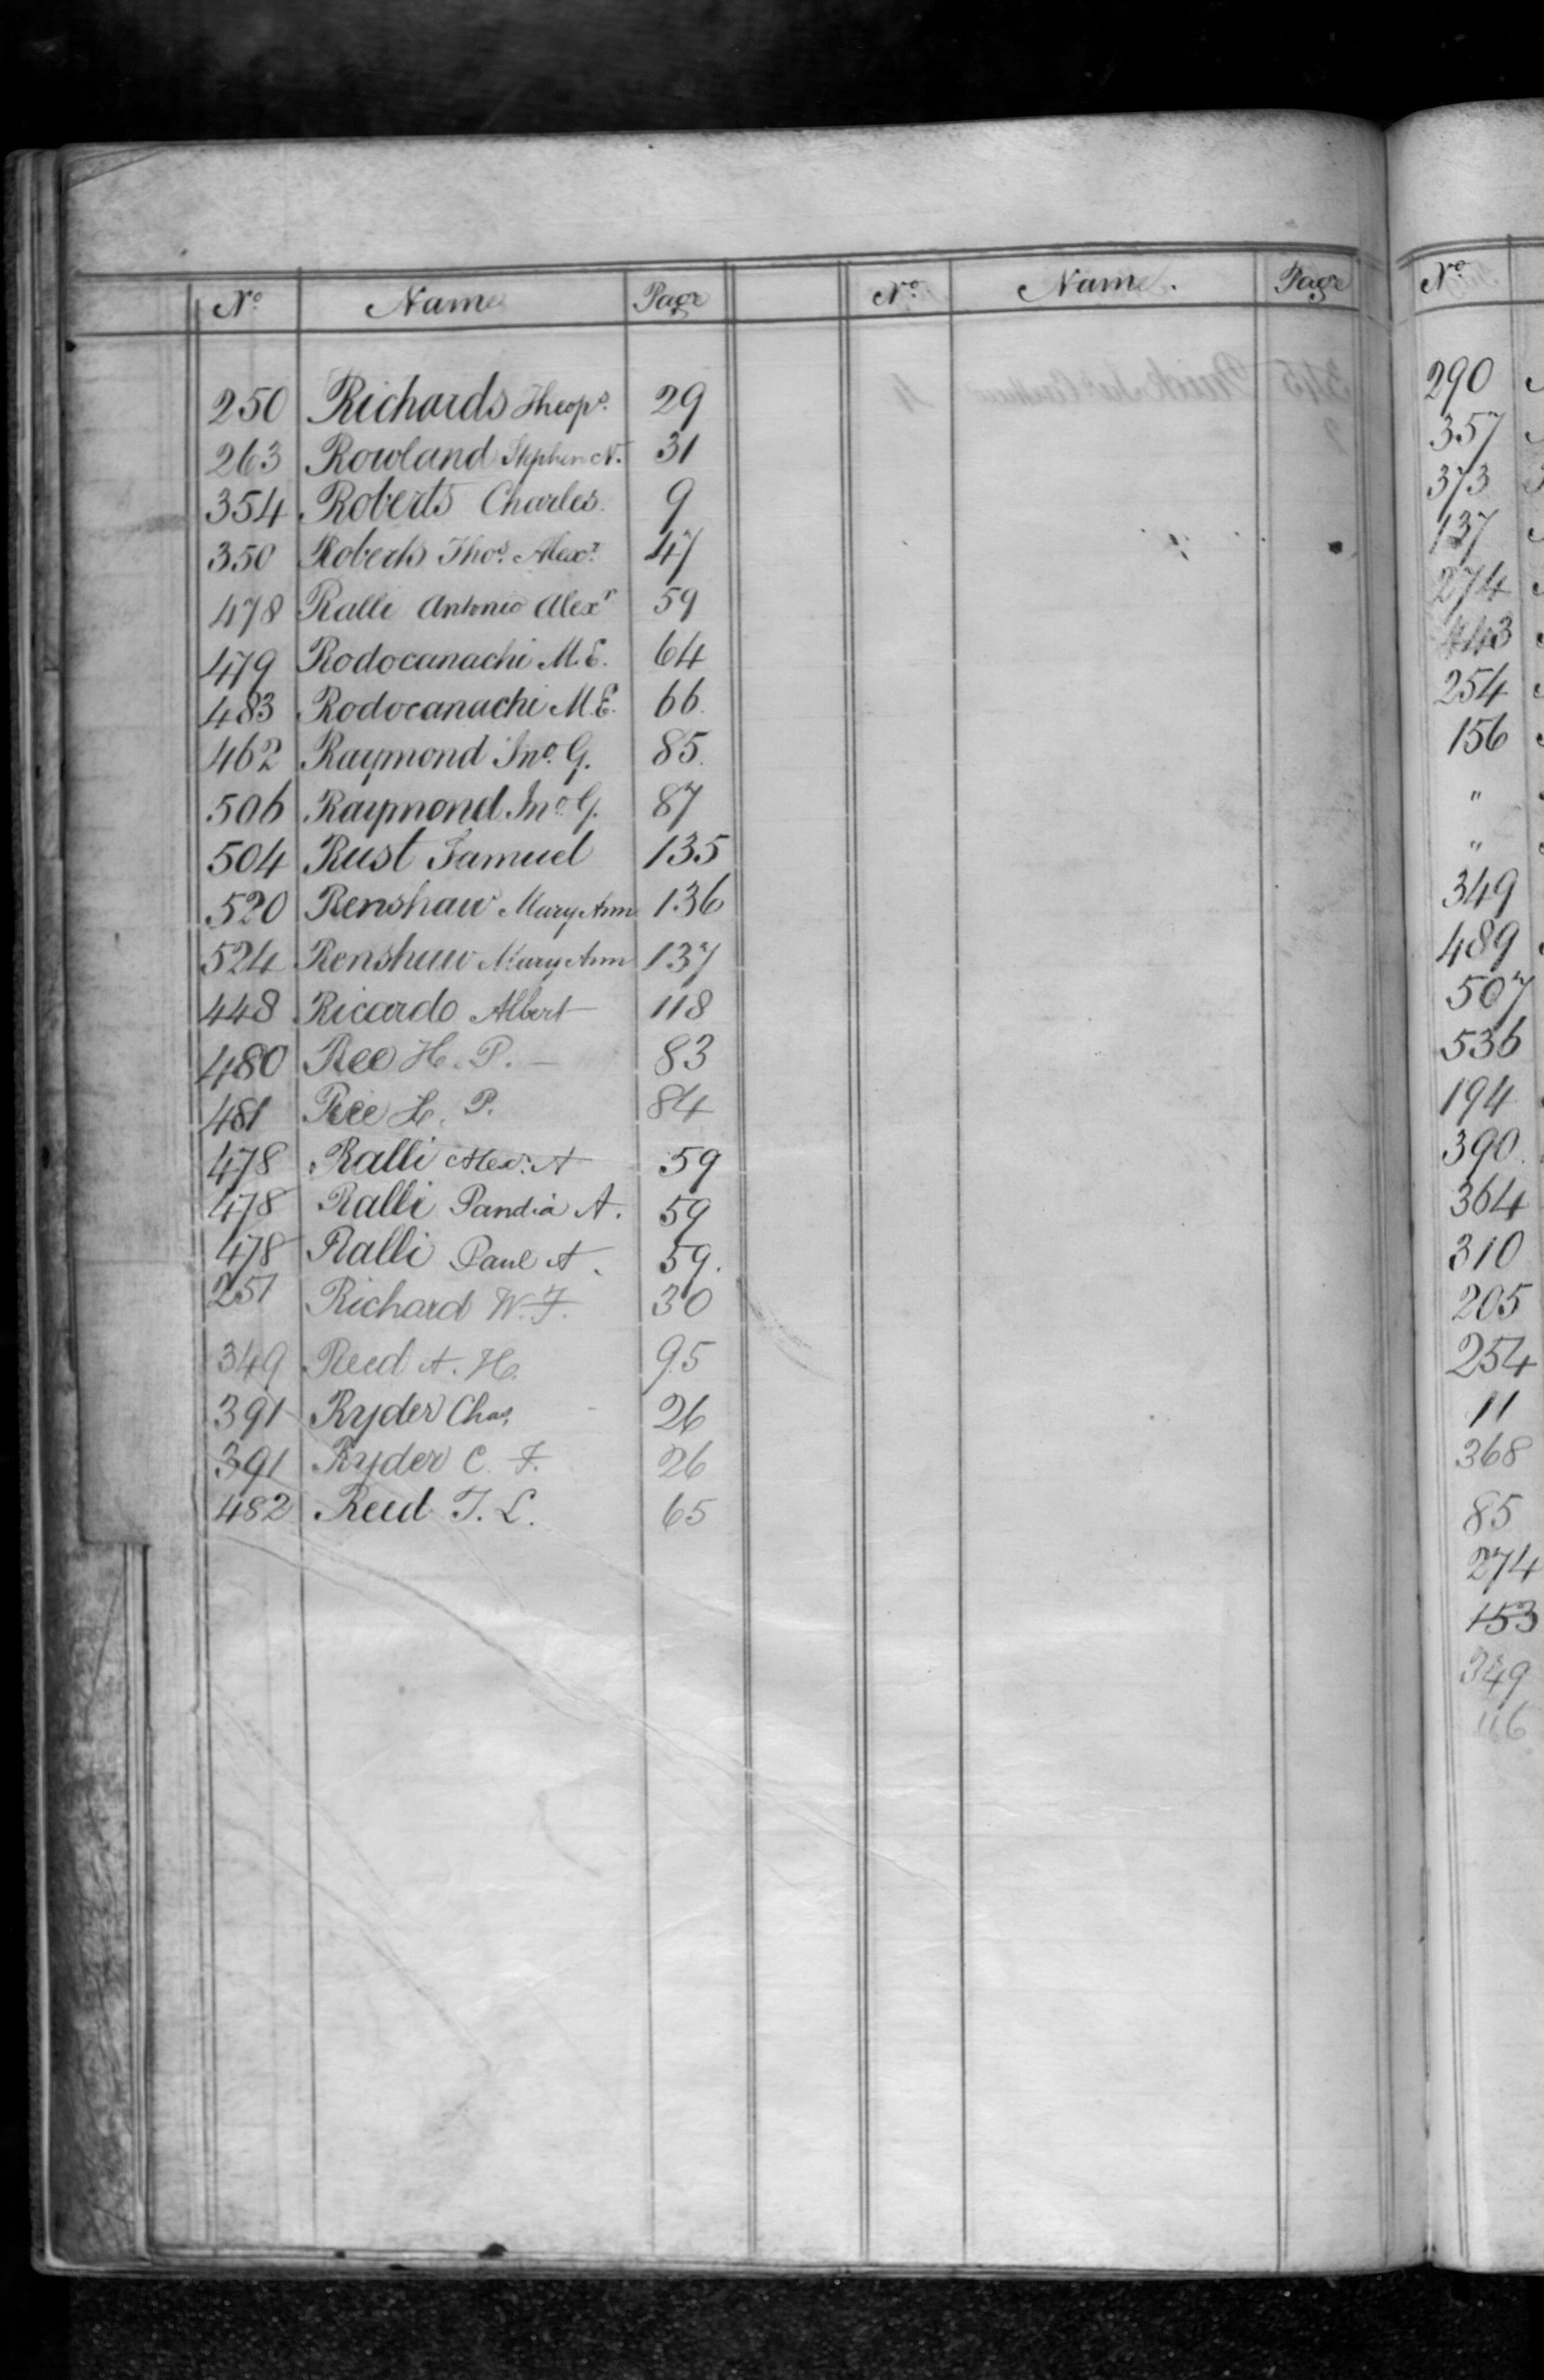 Nº Name Page Nº Name. Page
250 Richards Theops. 29
263 Rowland Stephen N. 31
354 Roberts Charles. 9
350 Roberts Thos. Alexr. 47
478 Ralli Antonio Alexr 59
479 Rodocanachi M.E. 64
483 Rodocanachi M.E. 66.
462 Raymond Jno. G. 85.
506 Raymond Jno G. 87
504 Rust Samuel 135
520 Renshaw Mary Ann 136
524 Renshaw Mary Ann 137
448 Ricardo Albert 118
480 Ree H. P. — 83
481 Ree H. P. 84
478 Ralli Alex: A 59
478 Ralli Pandia A. 59
478 Ralli Paul A. 59.
251 Richard W. F. 30
349 Reed A. H. 95
391 Ryder Chas. 26
391 Ryder C. F. 26
482 Reid T. L. 65
Nº
290
357
373
137
274
443
254
156
"
"
349
489
507
536
194
390.
364
310
205
254
11
368
85
274
153
349